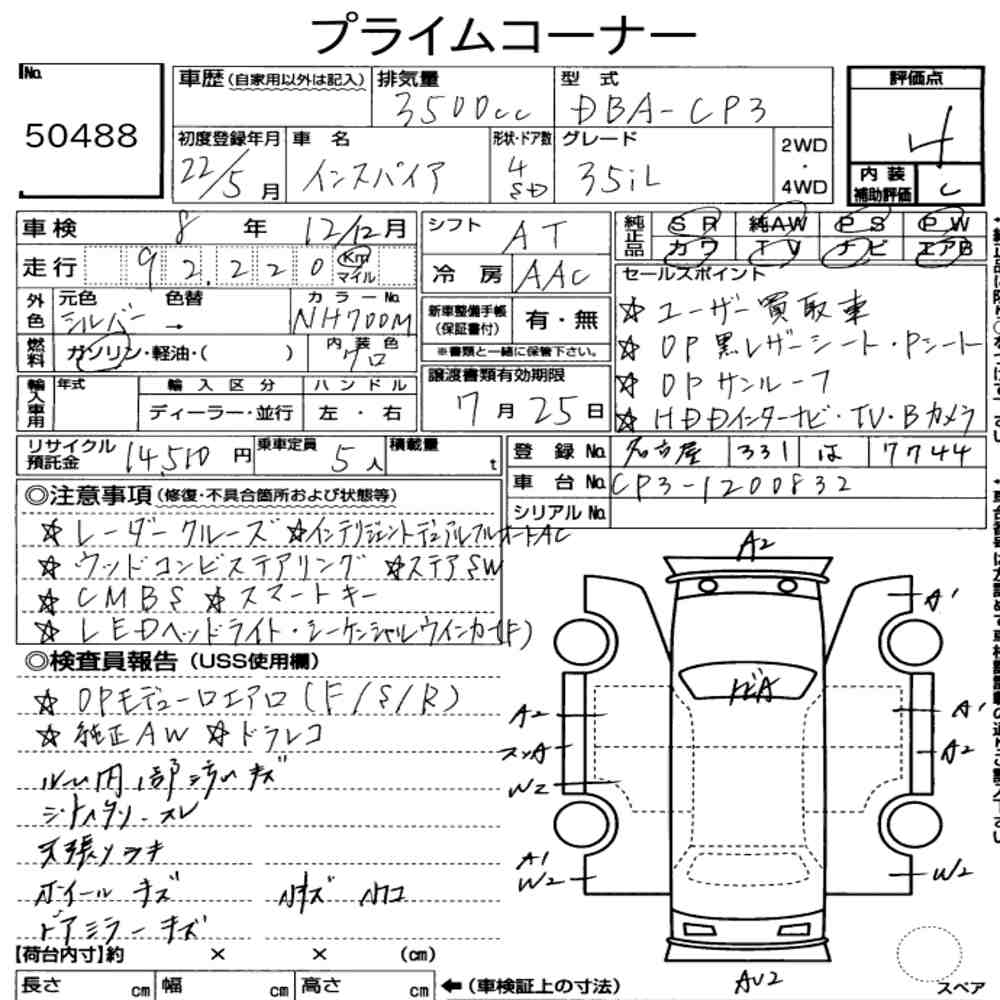 プライムコーナー
No. 50488
車歴(自家用以外は記入)
排気量 3500cc
型式 DBA-CP3
評価点 4
初度登録年月 22/5月
車名 インスパイア
形状・ドア数 4 SD
グレード 35iL
2WD・4WD
内装補助評価 C
車検 8年12/12月
シフト AT
純正品 SR 純AW PS PW
カワ TV ナビ エアB
走行 92,220 Km マイル
冷房 AAC
セールスポイント
外色 元色 シルバー → 色替 カラーNo. NH700M
新車整備手帳(保証書付) 有・無
※書類と一緒に保管下さい。
☆ユーザー買取車
燃料 ガソリン・軽油・( )
内装色 クロ
☆OP黒レザーシート・Pシート
譲渡書類有効期限 7月25日
☆OPサンルーフ
輸入車用 年式 輸入区分 ディーラー・並行 ハンドル 左・右
☆HDDインターナビ・TV・Bカメラ
リサイクル預託金 14,510円
乗車定員 5人
積載量 t
登録No. 名古屋 331 は 7744
車台No. CP3-1200832
シリアルNo.
◎注意事項(修復・不具合箇所および状態等)
☆レーダークルーズ ☆インテリジェントデュアルフルオートAC
☆ウッドコンビステアリング ☆ステアSW
☆CMBS ☆スマートキー
☆LEDヘッドライト・シーケンシャルウインカー(F)
◎検査員報告(USS使用欄)
☆OPモデューロエアロ(F/S/R)
☆純正AW ☆ドラレコ
シートヘタリ・スレ
ホイールキズ
ドアミラーキズ
A2
A'
トビA
A2
A'
スンA
A2
W2
A1
W2
W2
AU2
スペア
【荷台内寸】約 × × (cm)
長さ cm 幅 cm 高さ cm
←(車検証上の寸法)